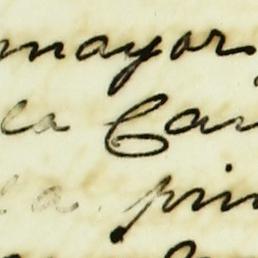 mayor
la Cai
la prin